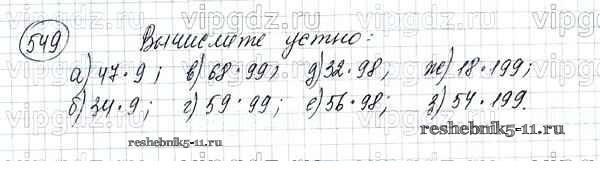 vipgdz.ru vipgdz.ru vipgdz.ru vipgdz.ru
549 Вычислите устно:
а) 47·9; в) 68·99; д) 32·98, ж) 18·199;
б) 34·9; г) 59·99; е) 56·98; з) 54·199.
reshebnik5-11.ru
reshebnik5-11.ru